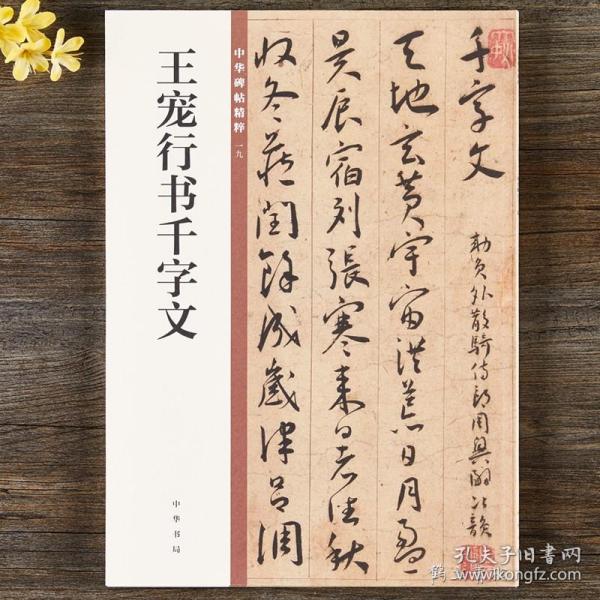 王宠行书千字文
中华书局
中华碑帖精粹 一九
千字文
勅員外散騎侍郎周興嗣次韻
天地玄黃宇宙洪荒日月盈
昃辰宿列張寒來暑往秋
收冬藏閏餘成歲律呂調
孔夫子旧书网
www.kongfz.com